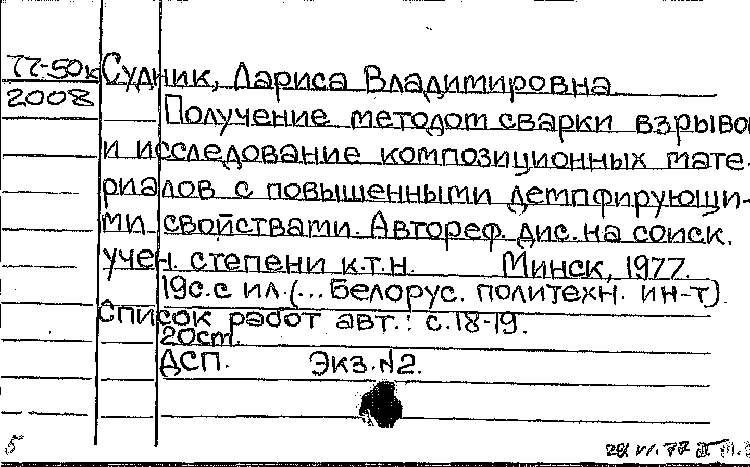 77-50к Судник, Лариса Владимировна
2008 Получение методом сварки взрывом
и исследование композиционных мате-
риалов с повышенными демпфирующи-
ми свойствами. Автореф. дис. на соиск.
учен. степени к.т.н. Минск, 1977.
19с. с ил. (... Белорус. политехн. ин-т).
Список работ авт.: с.18-19.
20cm.
ДСП. Экз.№2.
5